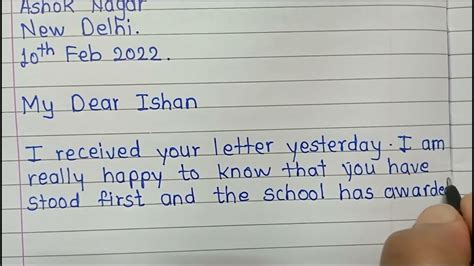 Ashok Nagar
New Delhi.
10th Feb 2022.
My Dear Ishan
I received your letter yesterday. I am
really happy to know that you have
stood first and the school has awarde